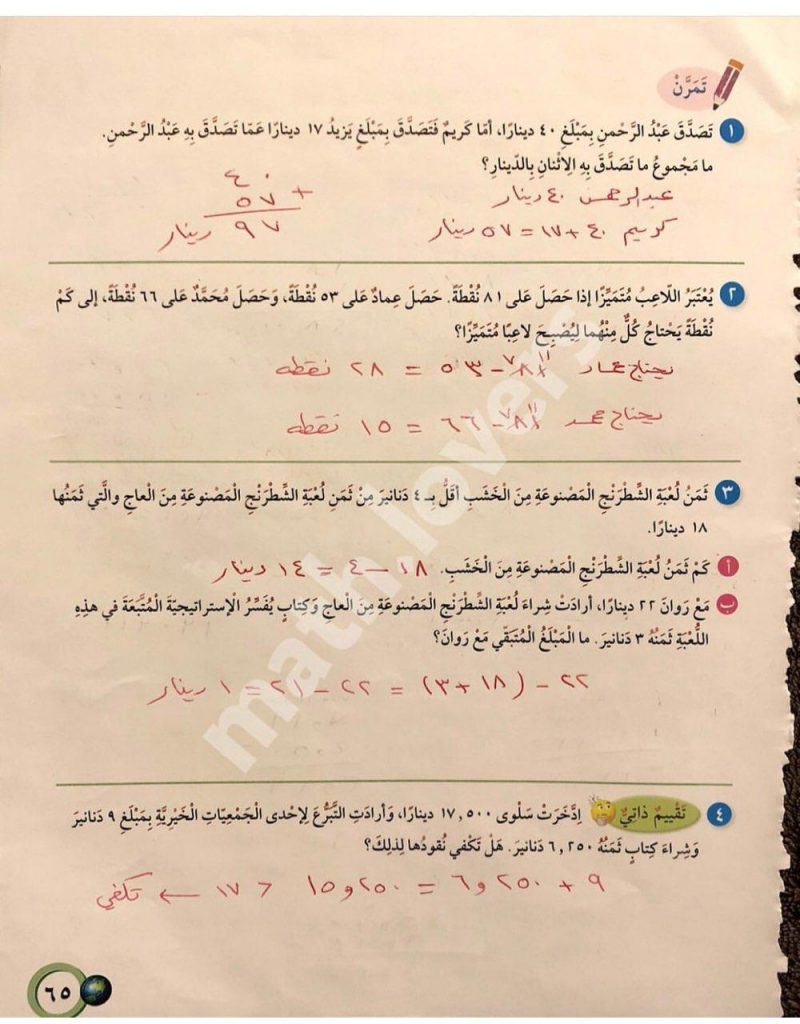 تَمَرَّنْ
١ تَصَدَّقَ عَبْدُ الرَّحْمنِ بِمَبْلَغِ ٤٠ دينارًا، أمّا كَريمٌ فَتَصَدَّقَ بِمَبْلَغٍ يَزيدُ ١٧ دينارًا عَمّا تَصَدَّقَ بِهِ عَبْدُ الرَّحْمنِ.
ما مَجْموعُ ما تَصَدَّقَ بِهِ الِاثْنانِ بِالدّينارِ؟
عبدالرحمن ٤٠ دينار
كريم ٤٠+١٧=٥٧ دينار
٤٠
٥٧ +
٩٧ دينار
٢ يُعْتَبَرُ اللّاعِبُ مُتَمَيِّزًا إذا حَصَلَ عَلى ٨١ نُقْطَةً. حَصَلَ عِمادٌ عَلى ٥٣ نُقْطَةً، وَحَصَلَ مُحَمَّدٌ عَلى ٦٦ نُقْطَةً، إلى كَمْ
نُقْطَةً يَحْتاجُ كُلٌّ مِنْهُما لِيُصْبِحَ لاعِبًا مُتَمَيِّزًا؟
٧ ١١
يحتاج عماد ٨١ – ٥٣ = ٢٨ نقطه
٧ ١١
يحتاج محمد ٨١ – ٦٦ = ١٥ نقطه
٣ ثَمَنُ لُعْبَةِ الشِّطْرَنْجِ الْمَصْنوعَةِ مِنَ الْخَشَبِ أقَلُّ بِـ ٤ دَنانيرَ مِنْ ثَمَنِ لُعْبَةِ الشِّطْرَنْجِ الْمَصْنوعَةِ مِنَ الْعاجِ والَّتي ثَمَنُها
١٨ دينارًا.
أ كَمْ ثَمَنُ لُعْبَةِ الشِّطْرَنْجِ الْمَصْنوعَةِ مِنَ الْخَشَبِ. ١٨ – ٤ = ١٤ دينار
ب مَعَ رَوانَ ٢٢ دينارًا، أرادَتْ شِراءَ لُعْبَةِ الشِّطْرَنْجِ الْمَصْنوعَةِ مِنَ الْعاجِ وَكِتابٍ يُفَسِّرُ الْإستراتيجيَّةَ الْمُتَّبَعَةَ في هذِهِ
اللُّعْبَةِ ثَمَنُهُ ٣ دَنانيرَ. ما الْمَبْلَغُ الْمُتَبَقّي مَعَ رَوانَ؟
٢٢ – (١٨ + ٣) = ٢٢ – ٢١ = ١ دينار
٤ تَقْييمٌ ذاتِيٌّ اِدَّخَرَتْ سَلْوى ١٧,٥٠٠ دينارًا، وَأرادَتِ التَّبَرُّعَ لِإحْدى الْجَمْعِيّاتِ الْخَيْرِيَّةِ بِمَبْلَغِ ٩ دَنانيرَ
وَشِراءَ كِتابٍ ثَمَنُهُ ٦,٢٥٠ دَنانيرَ. هَلْ تَكْفي نُقودُها لِذلِكَ؟
٩ + ٦و٢٥٠ = ١٥و٢٥٠ > ١٧ ← تكفي
٦٥
math.lovers